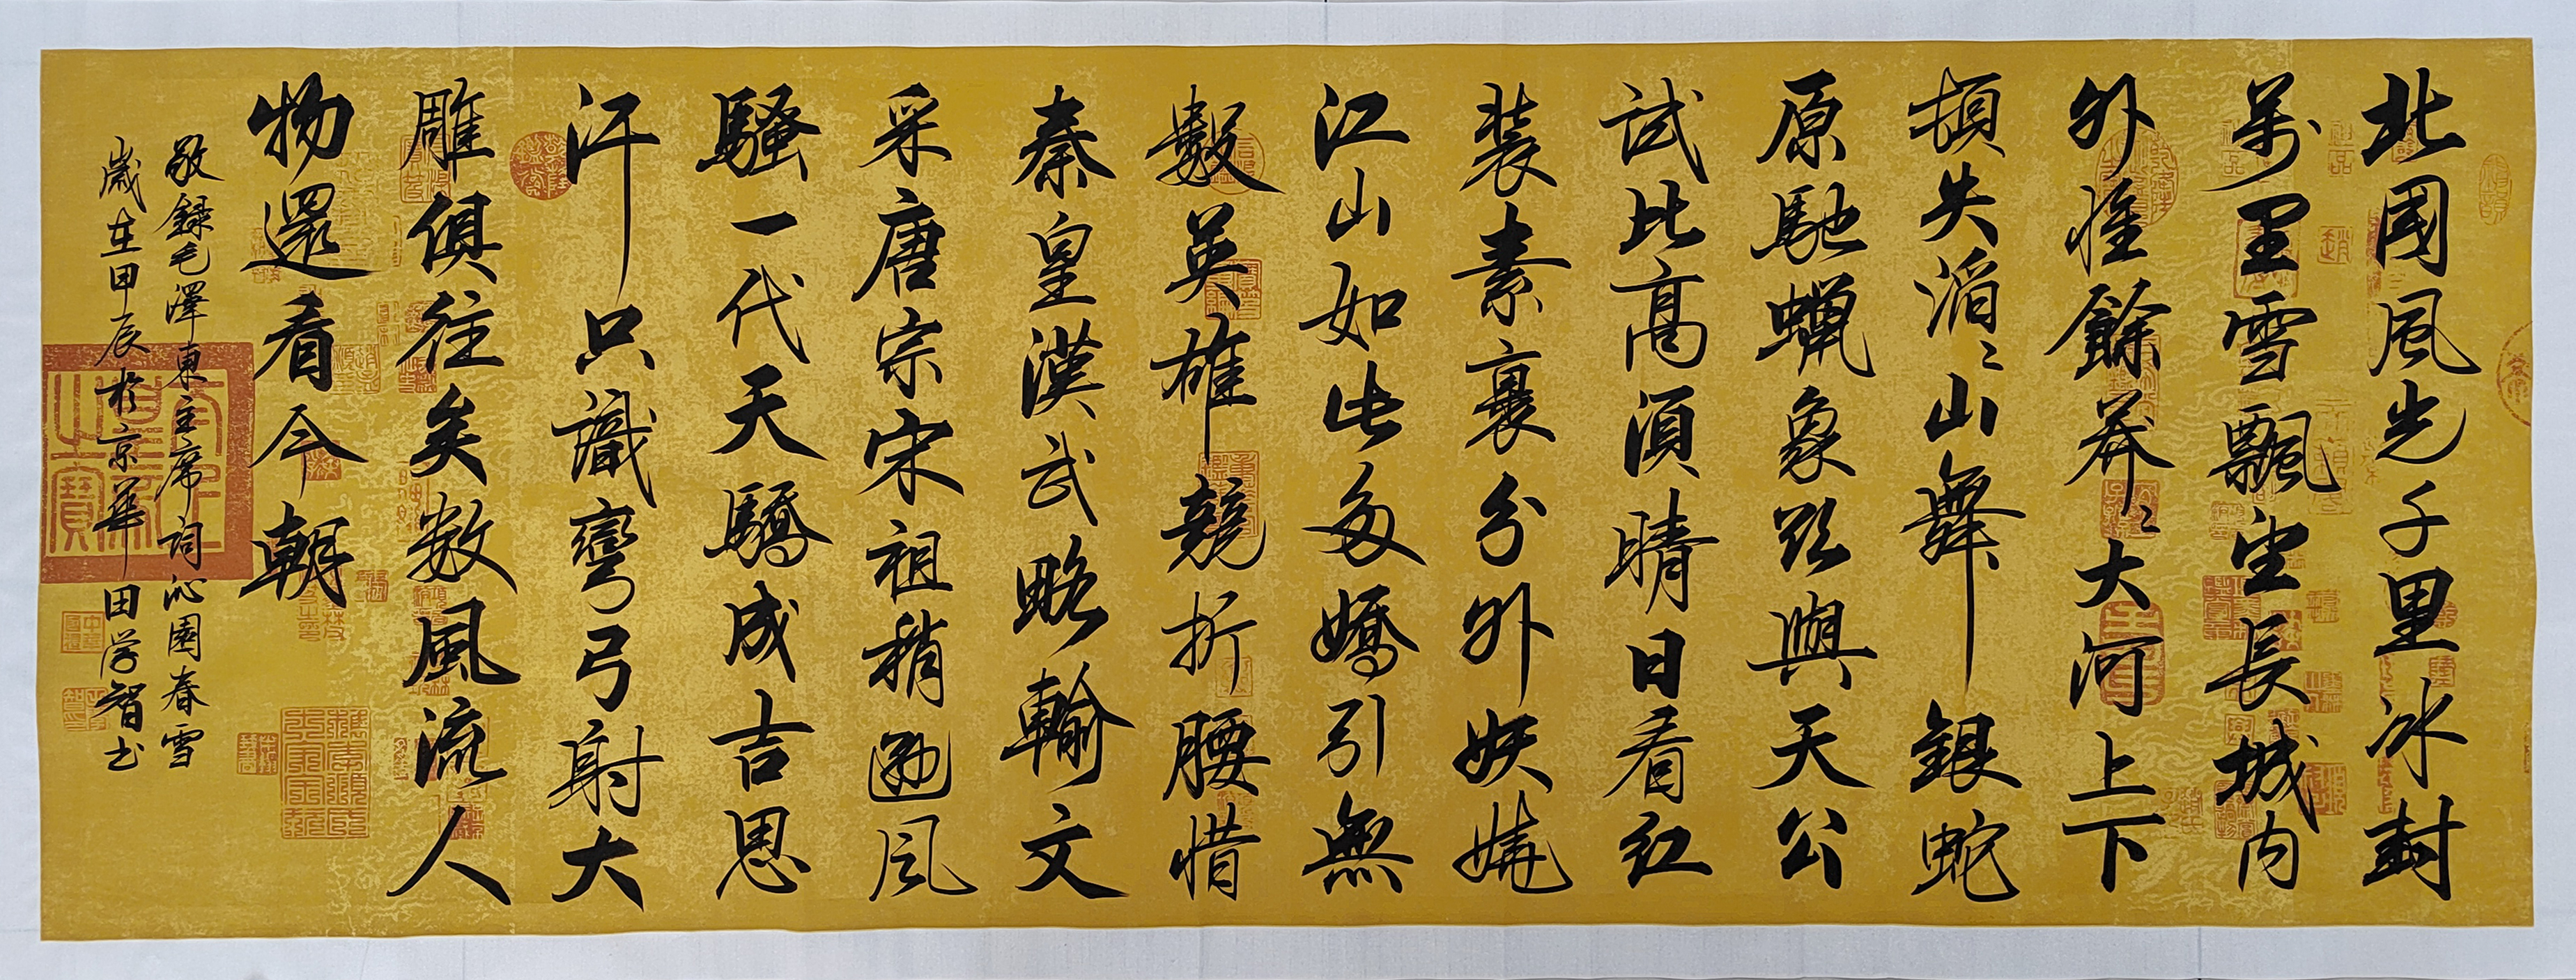 北國風光千里冰封
萬里雪飄望長城内
外惟餘莽〻大河上下
頓失滔〻山舞銀蛇
原馳蠟象欲與天公
試比高須晴日看紅
装素裹分外妖嬈
江山如此多嬌引無
數英雄競折腰惜
秦皇漢武略輸文
采唐宗宋祖稍遜風
騷一代天驕成吉思
汗只識彎弓射大
雕俱往矣数風流人
物還看今朝
敬録毛澤東主席詞沁園春雪
歲在甲辰於京華田学智书